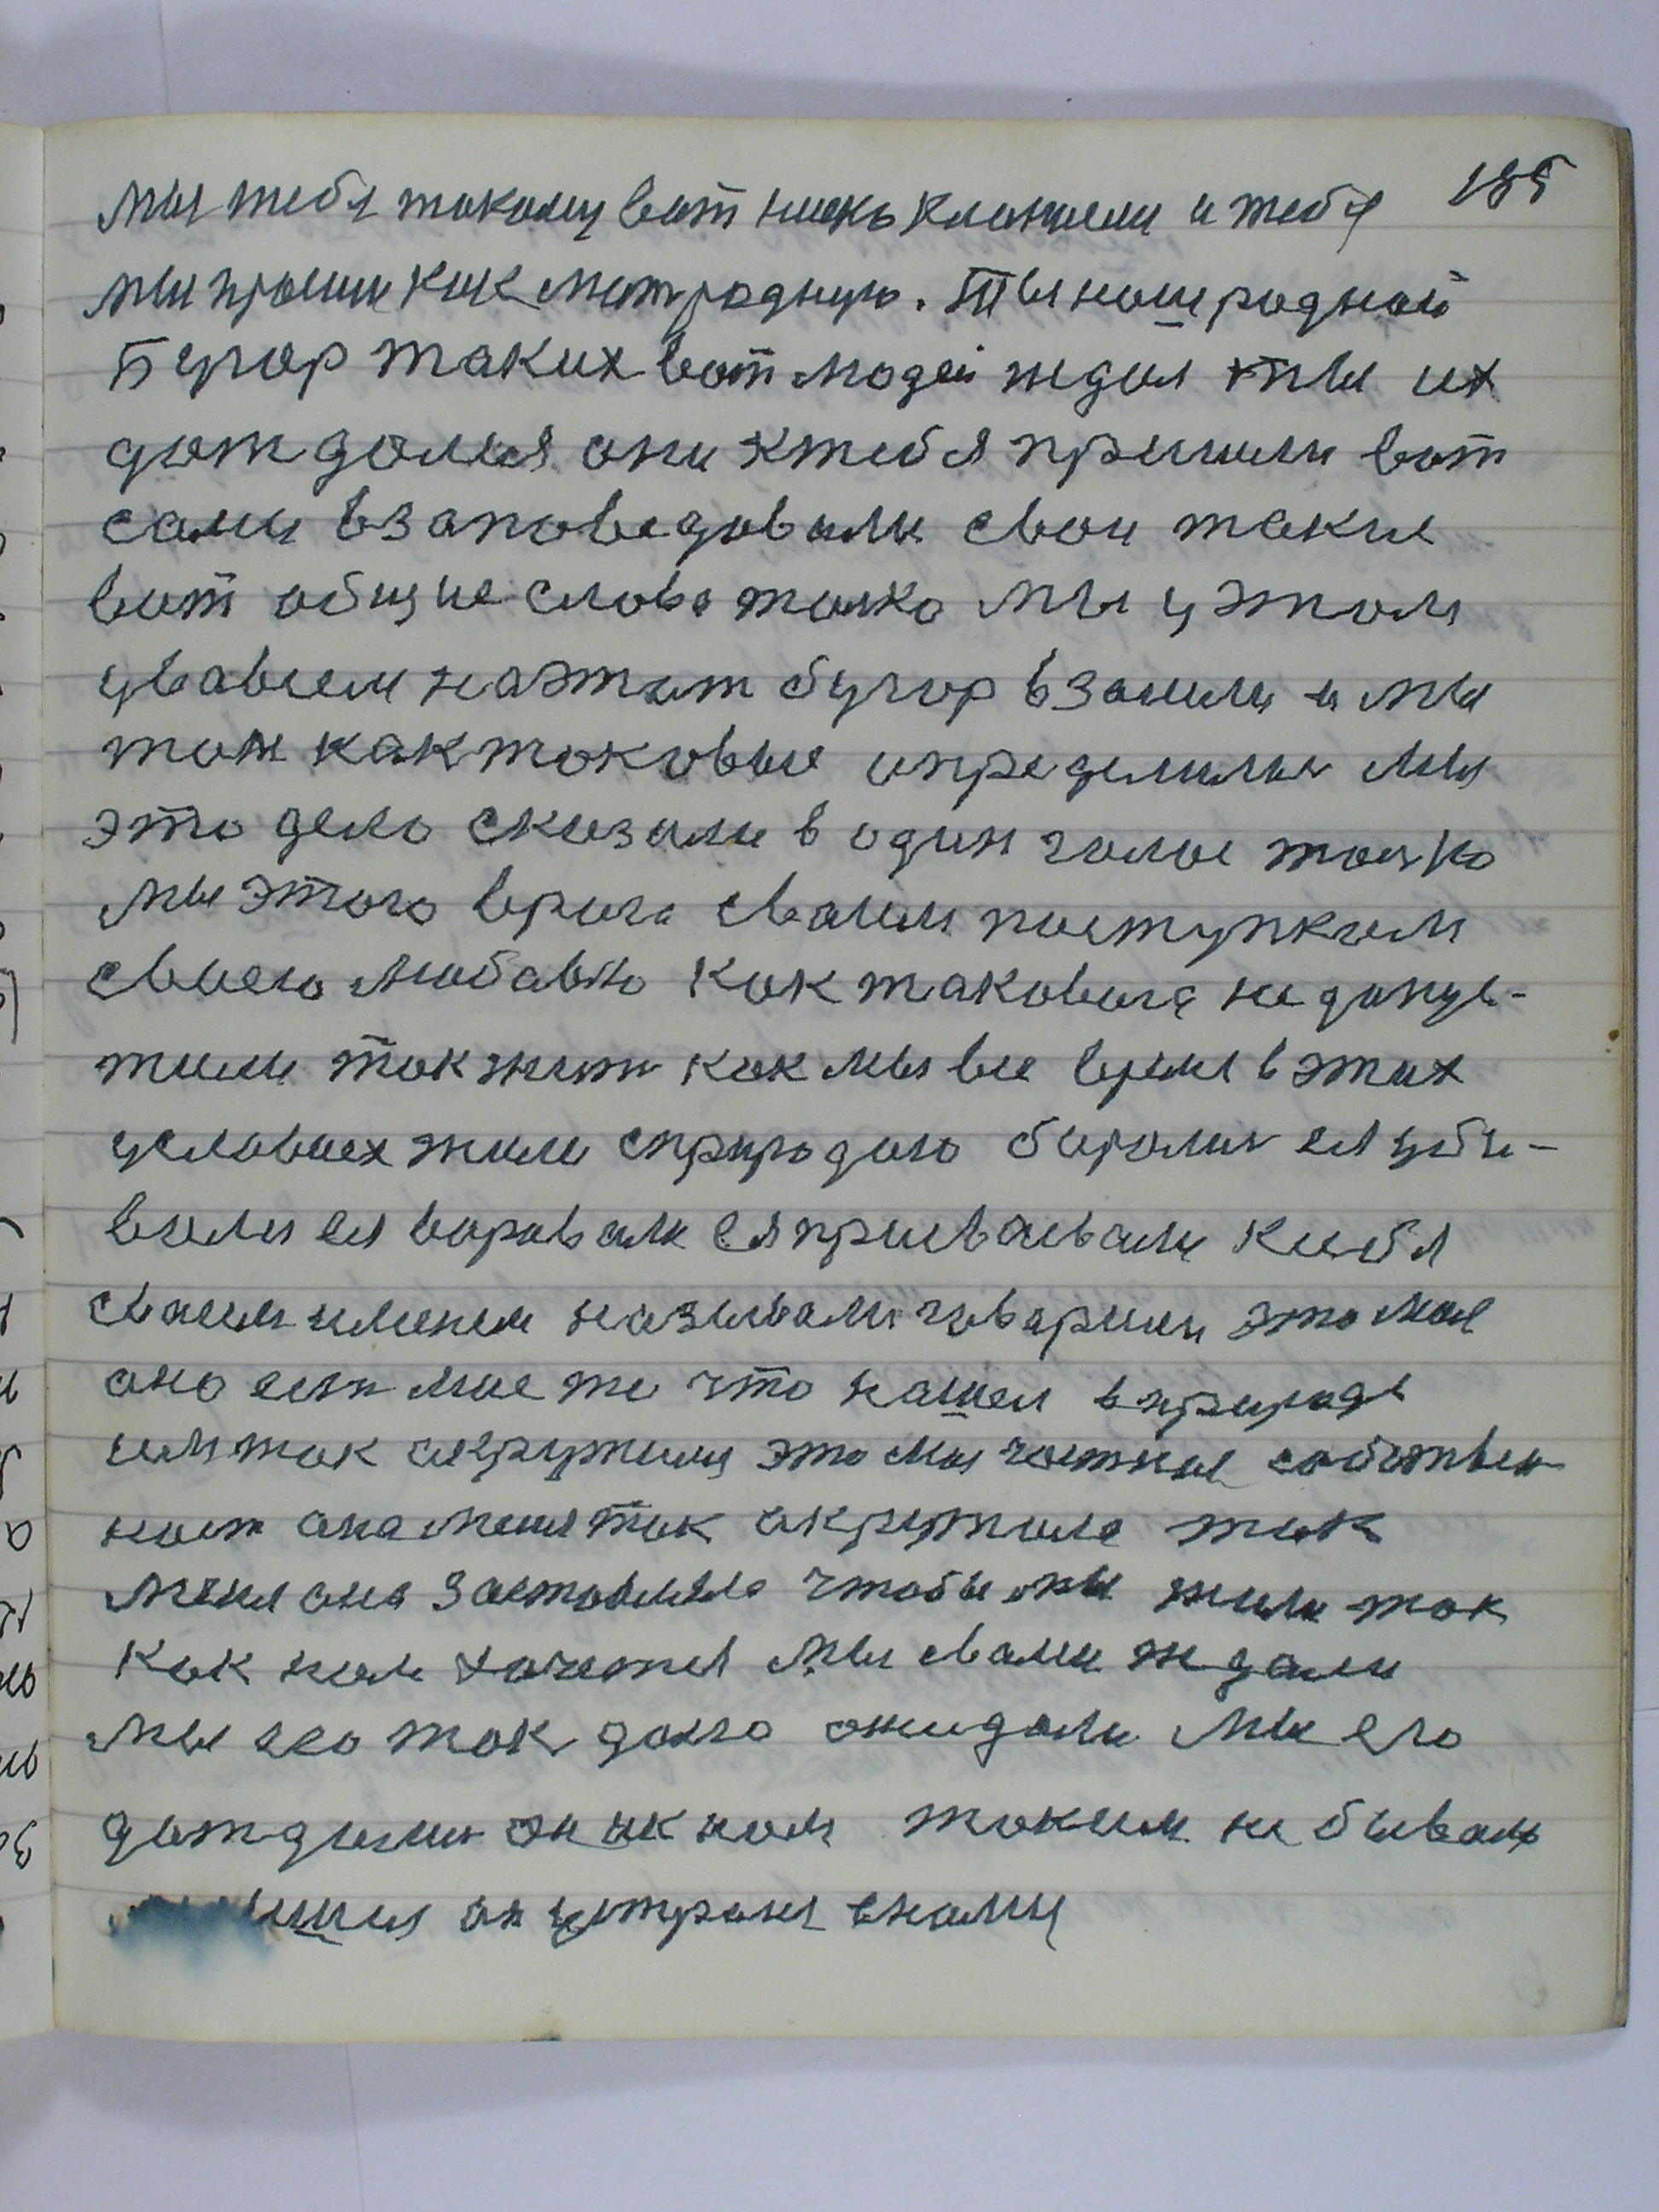 185
мы тебя такому вот ниско кланяемся и тебя
мы просим как мать родную. Ты наш родной
Бугор таких вот людей ждал ты их
дождался они ктебя пришли вот
сами взаповедовали свои такие
вот общие слова толко мы у этом
увавсем наэтат бугор взашли и мы
там как таковые определились мы
это дело сказали в один голос толко
мы этого врага сваим поступкам
своею любавю как таковога не допус-
тим так жить как мы все время в этах
условиех жили сприродою боролися ея уби-
вали ея воравали ея присваевали ксебя
сваим именем называли гаварили это мае
ано есть мае же что нашел вприроде
им так акружился это мая частная собствен
ность ана меня так акружила так
меня она заставляла чтобы мы жили так
как нам хочется мы свами ждали
мы его так долго ожидали мы его
дождались он ик нам таким не бывал
он устраня снами